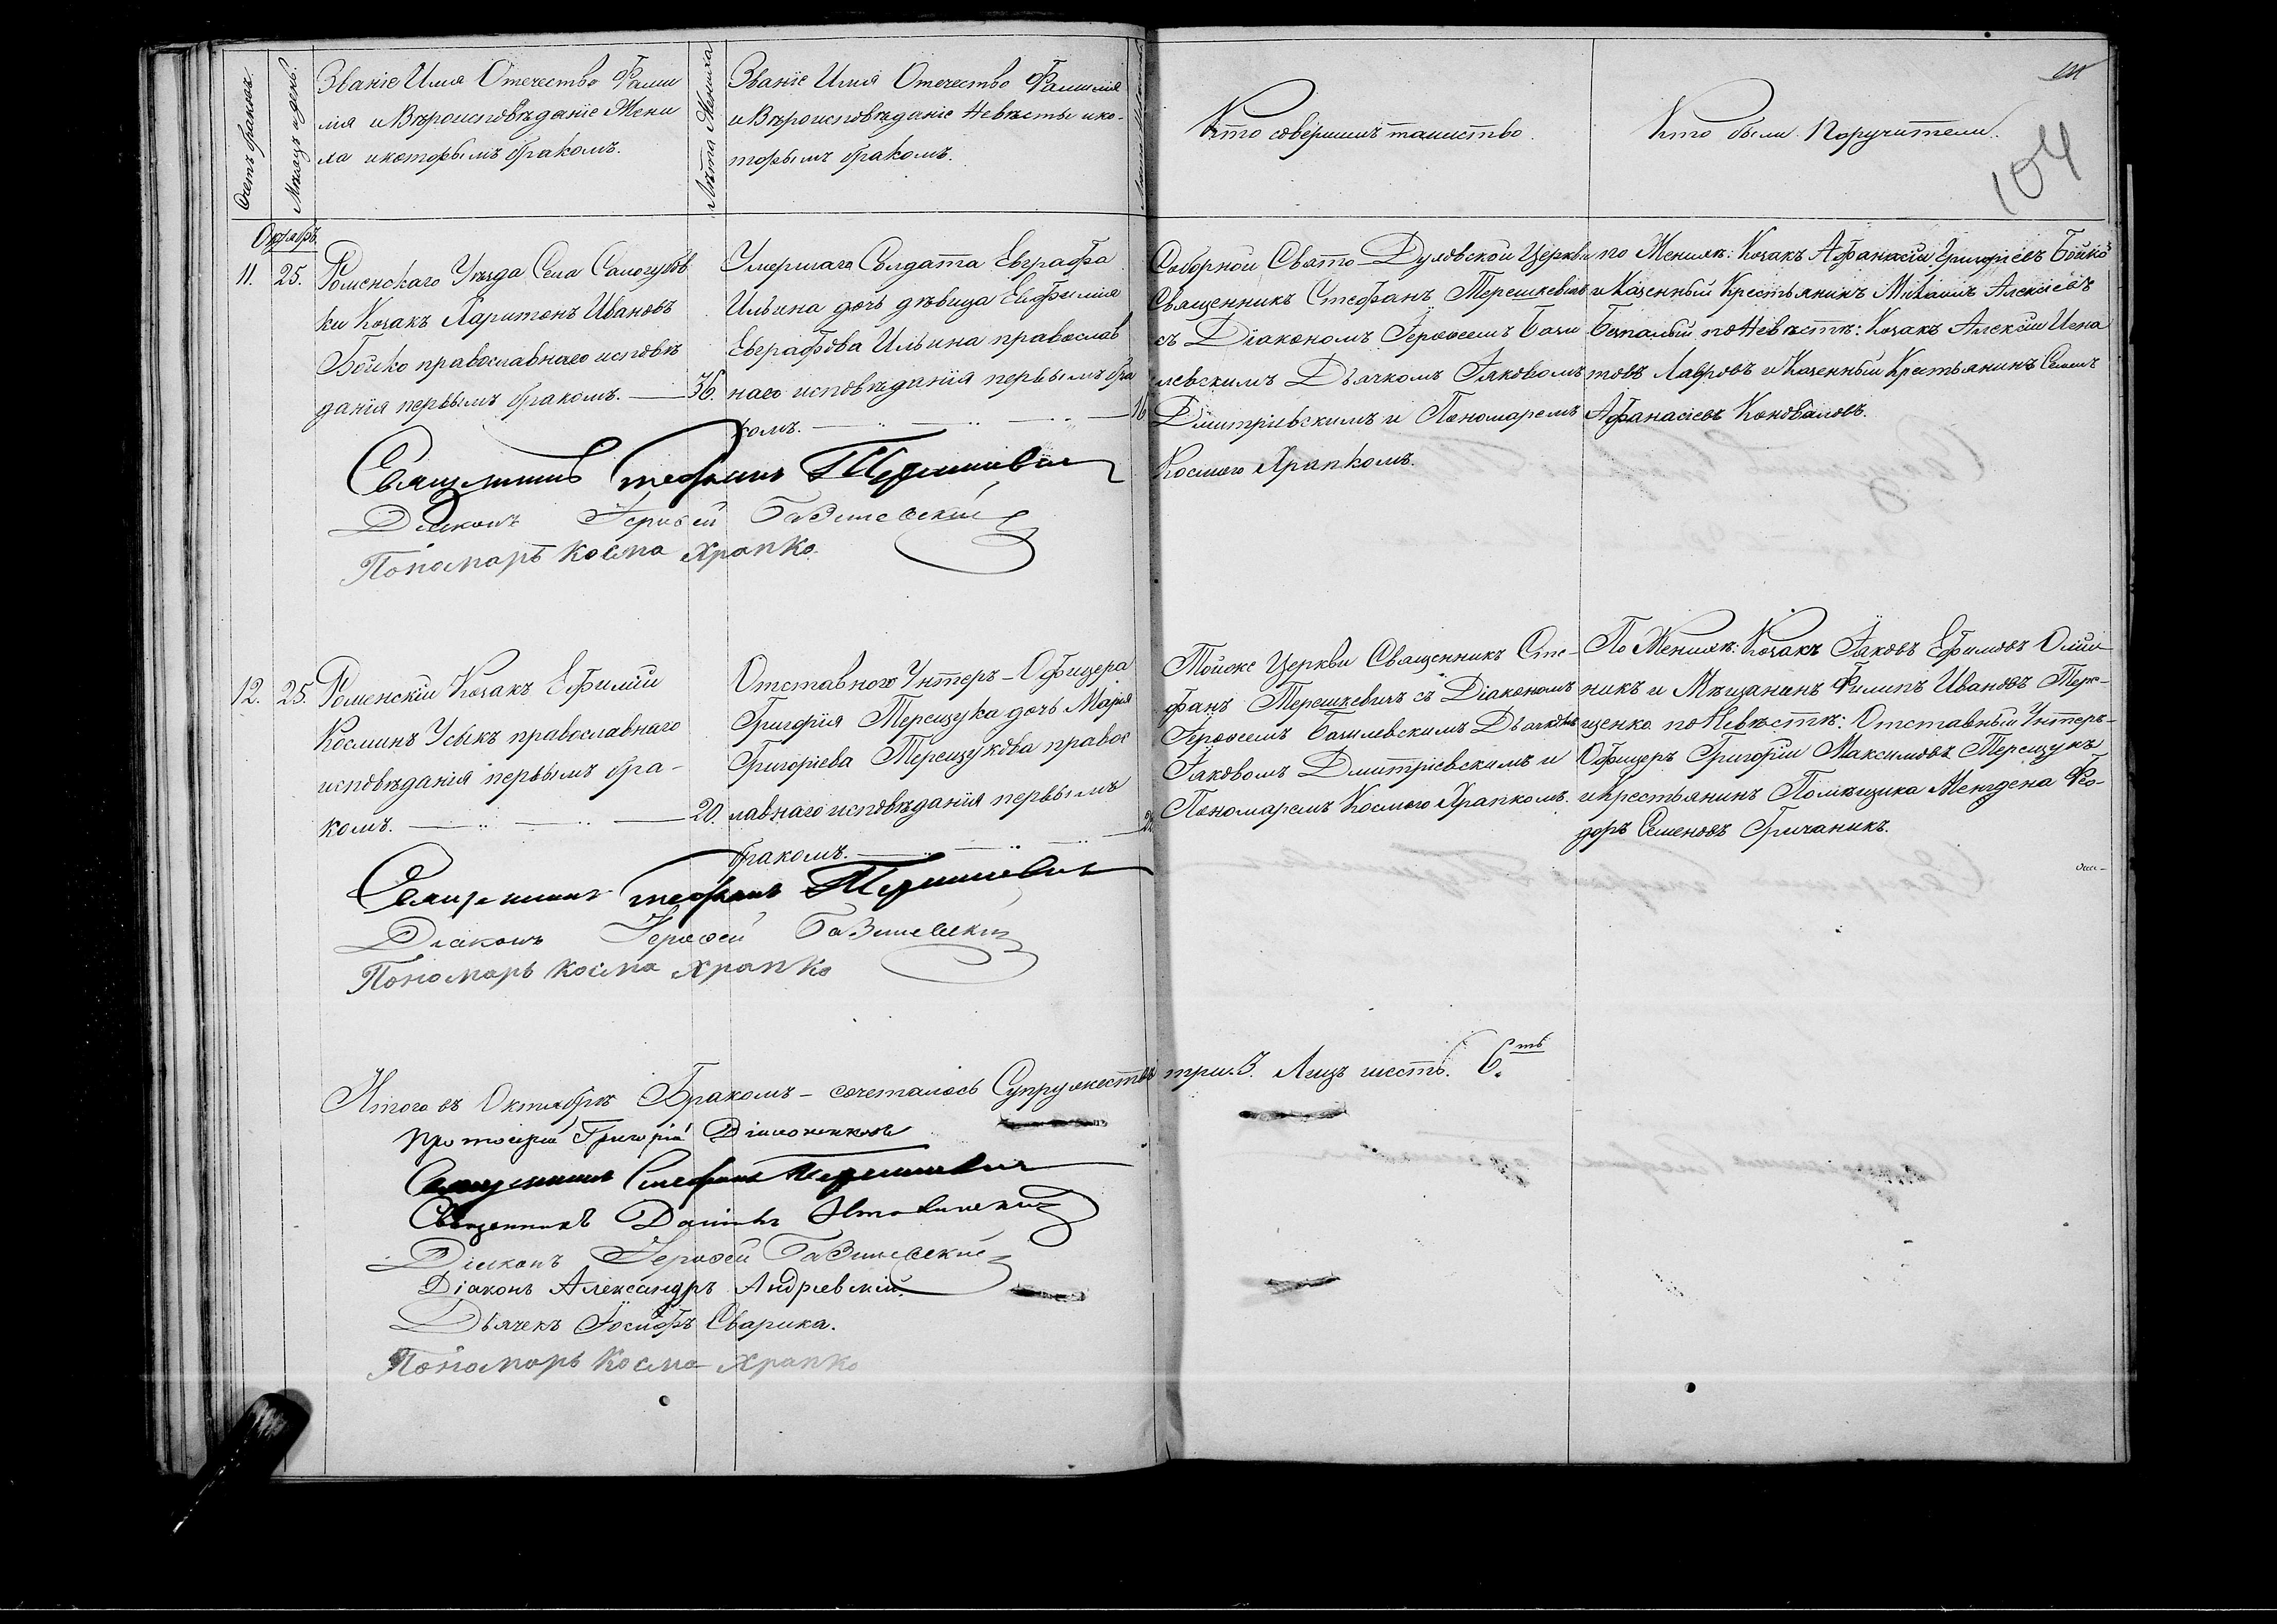 Счетъ браковъ.
Мѣсяцъ и день.
Званіе Имя Отечество Фами
лія и Вѣроисповѣданіе Жени
ха и которымъ бракомъ.
Лѣта Жениха
Званіе Имя Отечество Фамилія
и Вѣроисповѣданіе Невѣсты и ко-
торымъ бракомъ.
Кто совершилъ таинство.
Кто были Поручители.
104
Октябрь
11. 25.
Роменскаго Уѣзда Села Салогубов
ки Козакъ Харитонъ Ивановъ
Бойко православнаго исповѣ
данія первымъ бракомъ.
36.
Умершаго Солдата Евграфа
Ильина дочь дѣвица Евфимія
Евграфова Ильина православ
наго исповѣданія первымъ бра
комъ.
16
Соборной Свято-Духовской Церкви
Священникъ Стефанъ Терешкевичъ
съ Діакономъ Іерофеемъ Бази
левскимъ Дьячкомъ Іаковомъ
Дмитріевскимъ и Пономаремъ
Космою Храпкомъ.
по Женихѣ: Козакъ Афанасій Григоріевъ Бойко
и Казенный Крестьянинъ Михаилъ Алексіевъ
Безпалый по Невѣстѣ: Козакъ Алексій Игна
товъ Лавровъ и Казенный Крестьянинъ Семенъ
Афанасіевъ Коноваловъ.
Священникъ Стефанъ Терешкевичъ
Діаконъ Іерофей Базилевскій
Пономарь Косма Храпко.
12. 25.
Роменскій Козакъ Ефимій
Косминъ Усыкъ православнаго
исповѣданія первымъ бра-
комъ.
20.
Отставного Унтеръ-Офицера
Григорія Терещука дочь Марія
Григоріева Терещукова правос
лавнаго исповѣданія первымъ
бракомъ.
Тойже Церкви Священникъ Сте-
фанъ Терешкевичъ съ Діакономъ
Іерофеемъ Базилевскимъ Дьячкомъ
Іаковомъ Дмитріевскимъ и
Пономаремъ Космою Храпкомъ.
По Женихѣ: Козакъ Іаковъ Ефимовъ Олій
никъ и Мѣщанинъ Филипъ Ивановъ Тере-
щенко по Невѣстѣ: Отставный Унтеръ-
Офицеръ Григорій Максимовъ Терещукъ
и крестьянинъ Помѣщика Менгдена Фео-
доръ Семеновъ Гричаникъ.
Священникъ Стефанъ Терешкевичъ
Діаконъ Іерофей Базилевскій
Пономарь Косма Храпко
Итого въ Октябрѣ Бракомъ-сочеталось Супружествъ три. 3. Лицъ шесть. 6.ть
Протоіерей Григорій
Священникъ Стефанъ Терешкевичъ
Священникъ Даніилъ
Діаконъ Іерофей Базилевскій
Діаконъ Александръ Андріевскій.
Дьячекъ Іосифъ Сварика.
Пономарь Косма Храпко